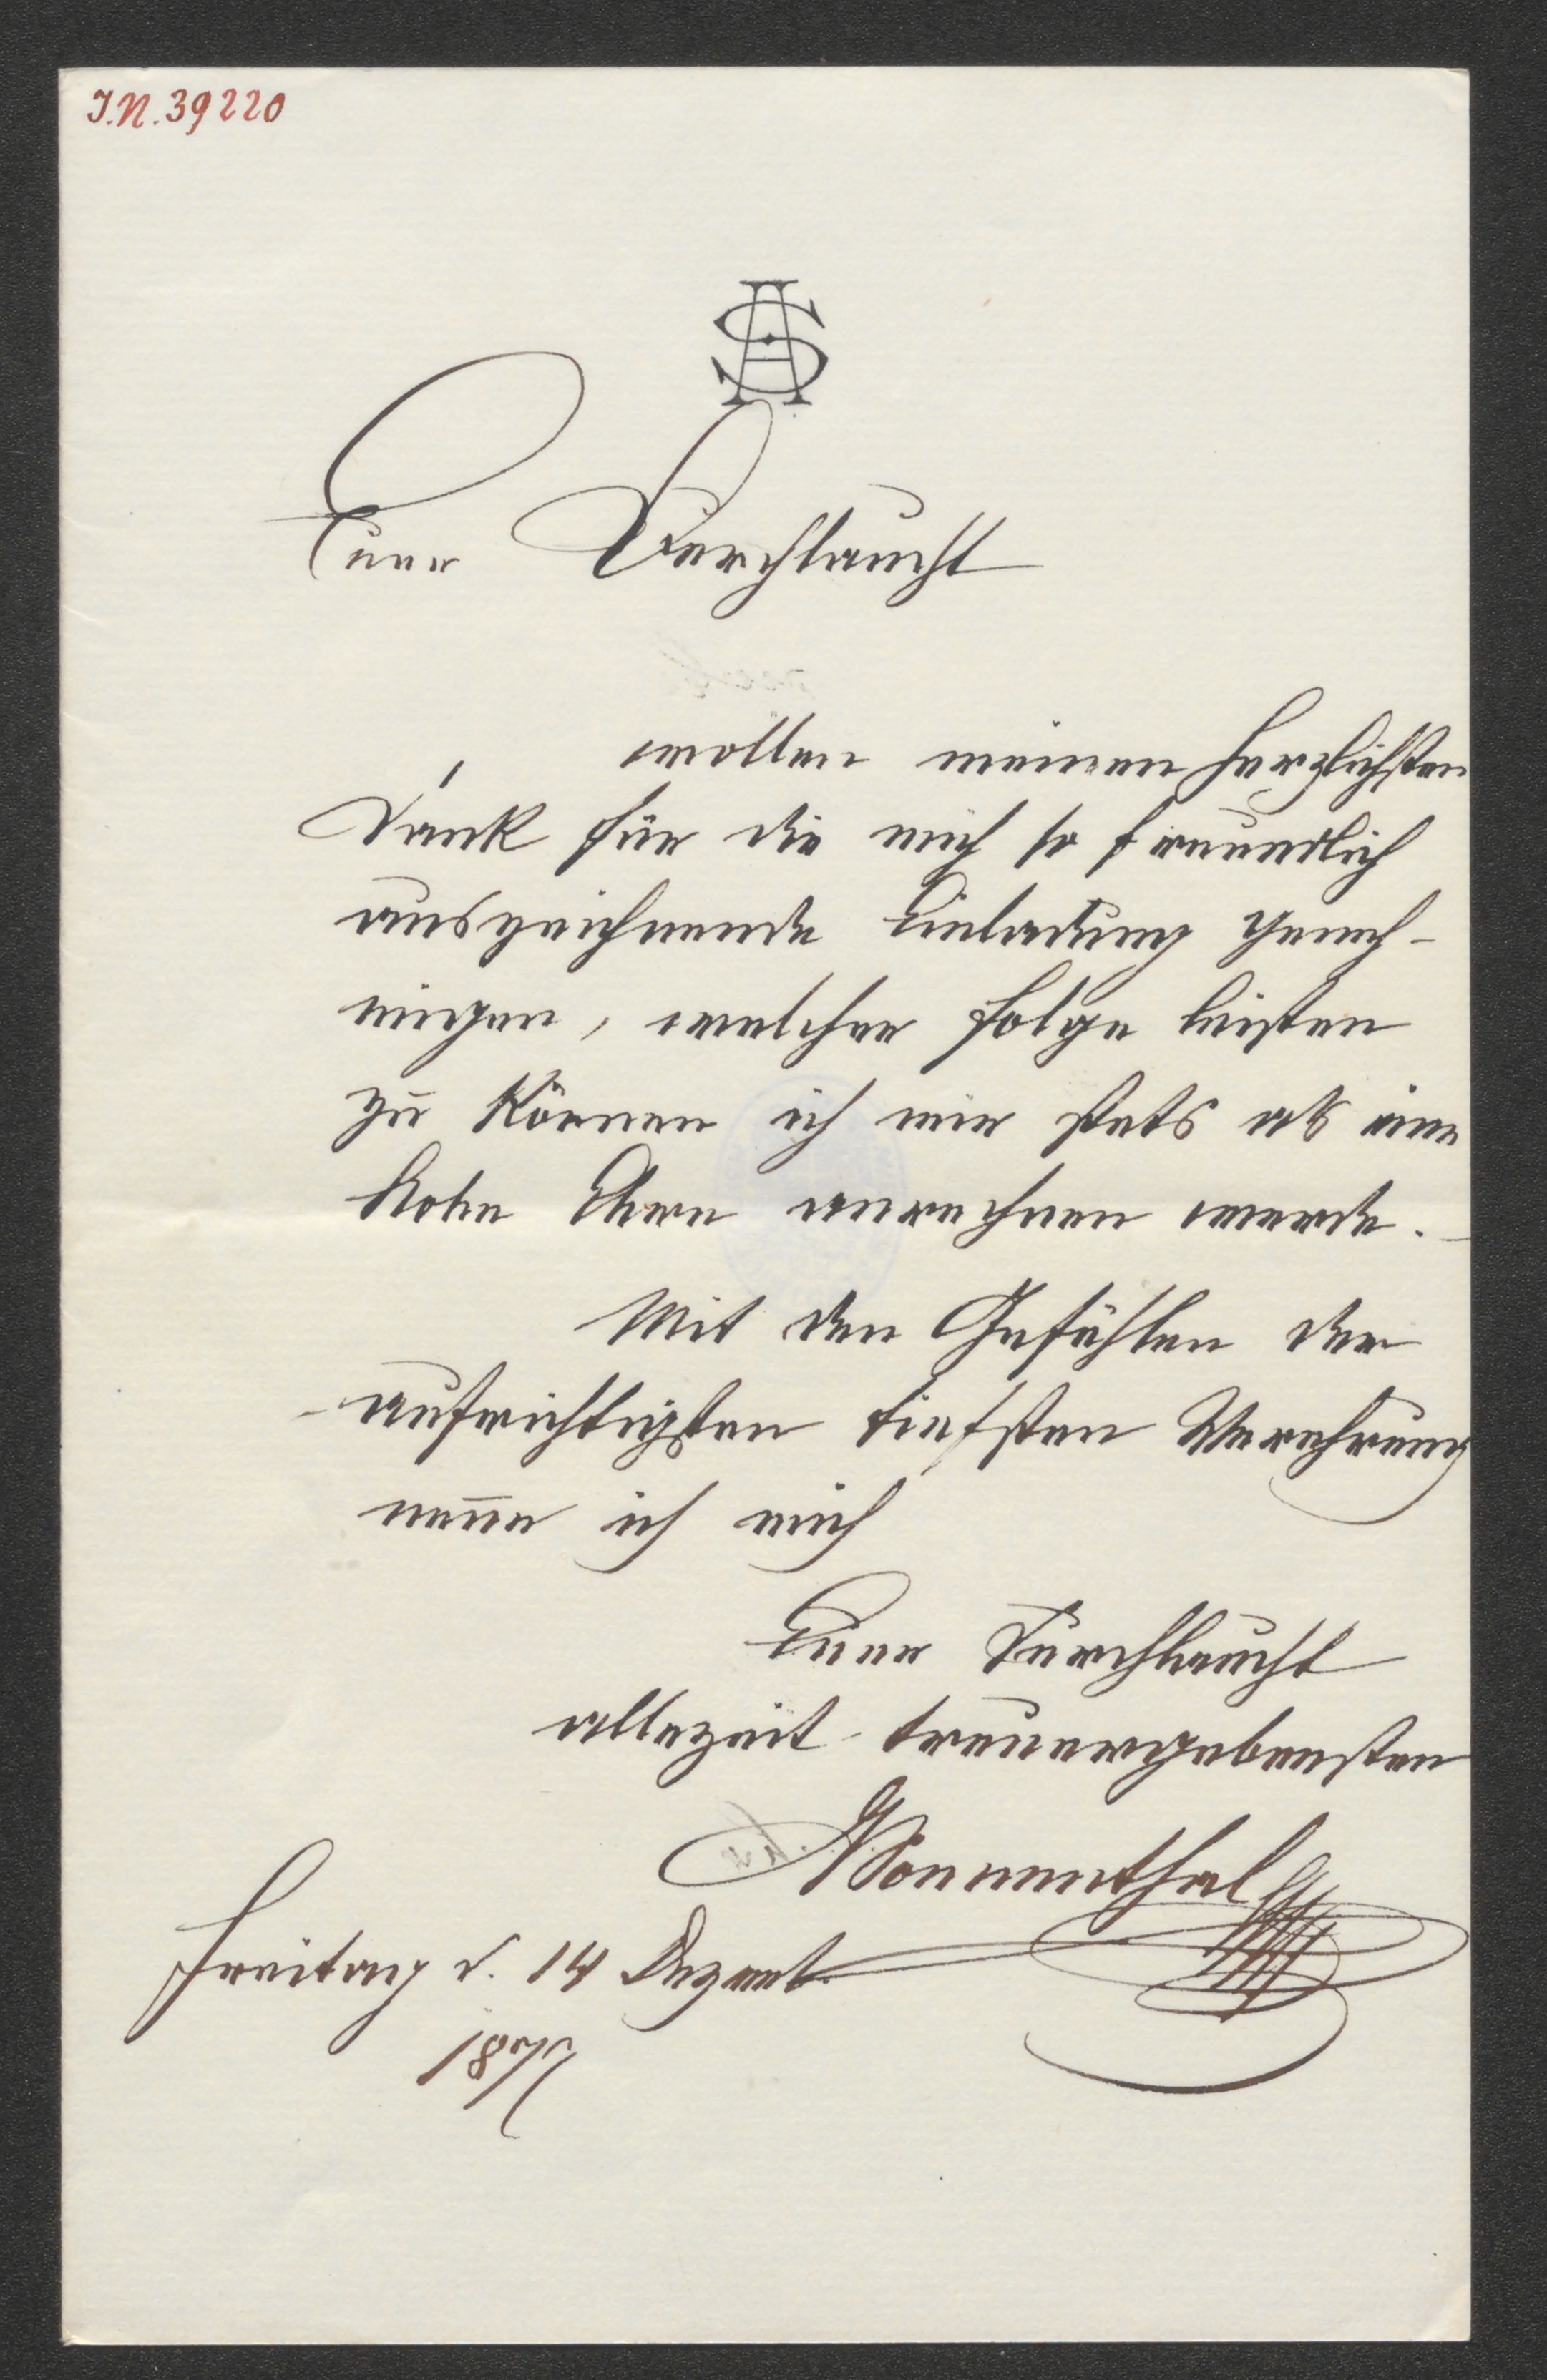 I.N. 39220
AS
Euer Durchlaucht
wollen meinen herzlichsten
Dank für die mich so freundlich
auszeichnende Einladung geneh-
migen, welcher Folge leisten
zu können ich mir stets als eine
hohe Ehre anrechnen werde. –
Mit den Gefühlen der
aufrichtigsten tiefsten Verehrung
neñe ich mich
Euer Durchlaucht
allezeit treuergebensten
ASonnenthal
Freitag d. 14 Dezemb.